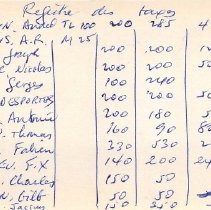 Registre des taxes
N. André TL 100 200 285 4
S. A.R. M 25
Joseph 200 200 10
e Nicolas 200 200 50
Serges 100 200
DESPORTES 200 200 50
. Antoine 200 180 5
. Thomas 160 90 8
. Fabien 330 530 2
EV. F.X 140 200 24
. Charles 150 50
N. Gilb 50 50
Jacques 150 350